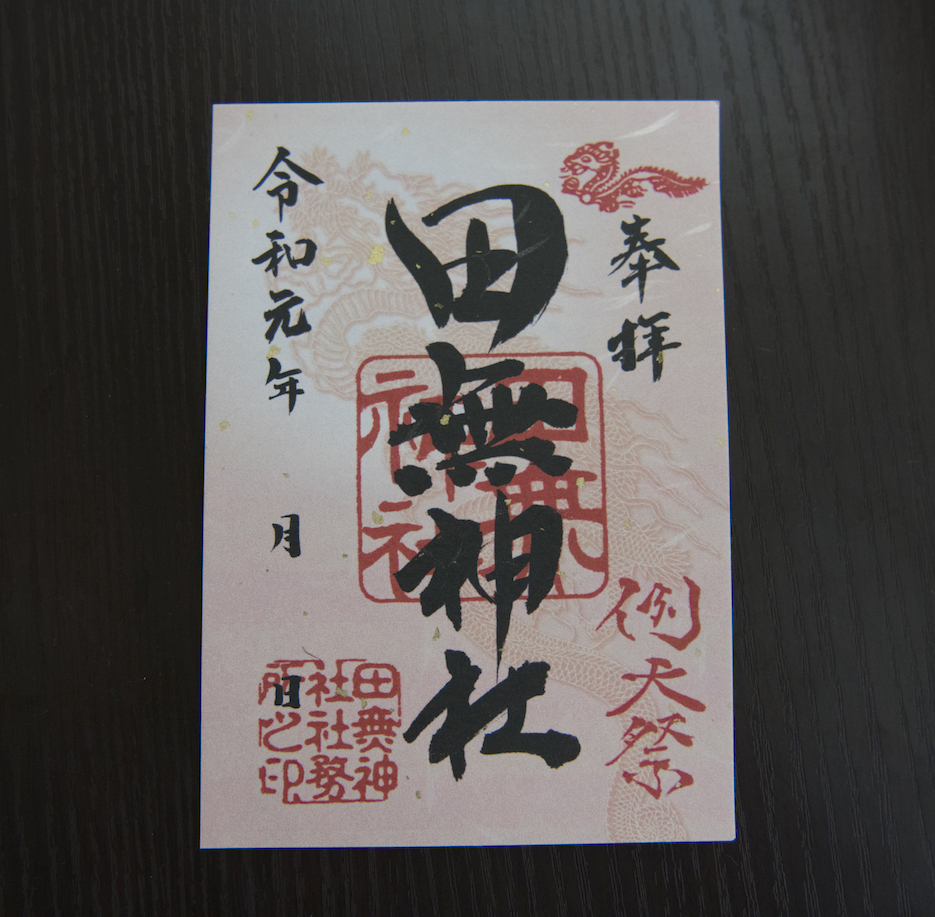 奉拝
例大祭
田無神社
田無神社
令和元年 月 日
田無神社社務所之印